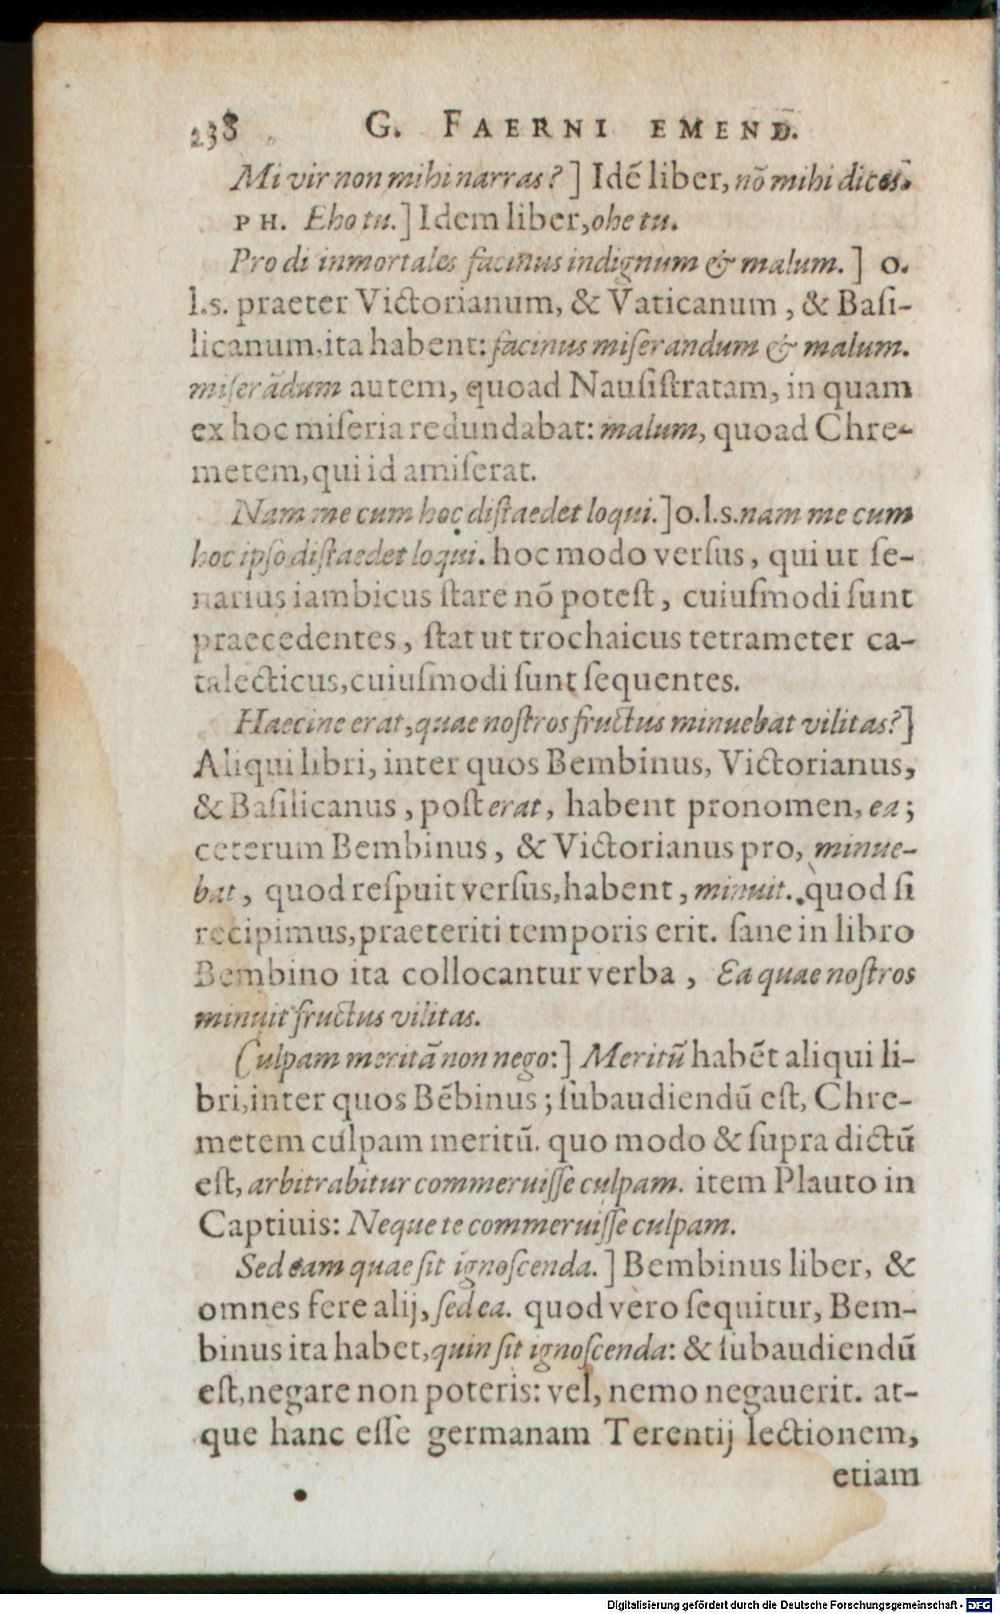 238 G. FAERNI EMEND.
Mi vir non mihi narras? ] Idē liber, nō mihi dices.
PH. Eho tu. ] Idem liber, ohe tu.
Pro di inmortales facinus indignum & malum. ] o.
l.s. praeter Victorianum, & Vaticanum, & Basi-
licanum, ita habent: facinus miserandum & malum.
miserādum autem, quoad Nausistratam, in quam
ex hoc miseria redundabat: malum, quoad Chre-
metem, qui id amiserat.
Nam me cum hoc distaedet loqui. ] o.l.s. nam me cum
hoc ipso distaedet loqui. hoc modo versus, qui ut se-
narius iambicus stare nō potest, cuiusmodi sunt
praecedentes, stat ut trochaicus tetrameter ca-
talecticus, cuiusmodi sunt sequentes.
Haecine erat, quae nostros fructus minuebat vilitas? ]
Aliqui libri, inter quos Bembinus, Victorianus,
& Basilicanus, post erat, habent pronomen, ea;
ceterum Bembinus, & Victorianus pro, minue-
bat, quod respuit versus, habent, minuit. quod si
recipimus, praeteriti temporis erit. sane in libro
Bembino ita collocantur verba, Ea quae nostros
minuit fructus vilitas.
Culpam meritā non nego: ] Meritū habēt aliqui li-
bri, inter quos Bēbinus; subaudiendū est, Chre-
metem culpam meritū. quo modo & supra dictū
est, arbitrabitur commeruisse culpam. item Plauto in
Captiuis: Neque te commeruisse culpam.
Sed eam quae sit ignoscenda. ] Bembinus liber, &
omnes fere alij, sed ea. quod vero sequitur, Bem-
binus ita habet, quin sit ignoscenda: & subaudiendū
est, negare non poteris: vel, nemo negauerit. at-
que hanc esse germanam Terentij lectionem,
etiam
Digitalisierung gefördert durch die Deutsche Forschungsgemeinschaft - DFG